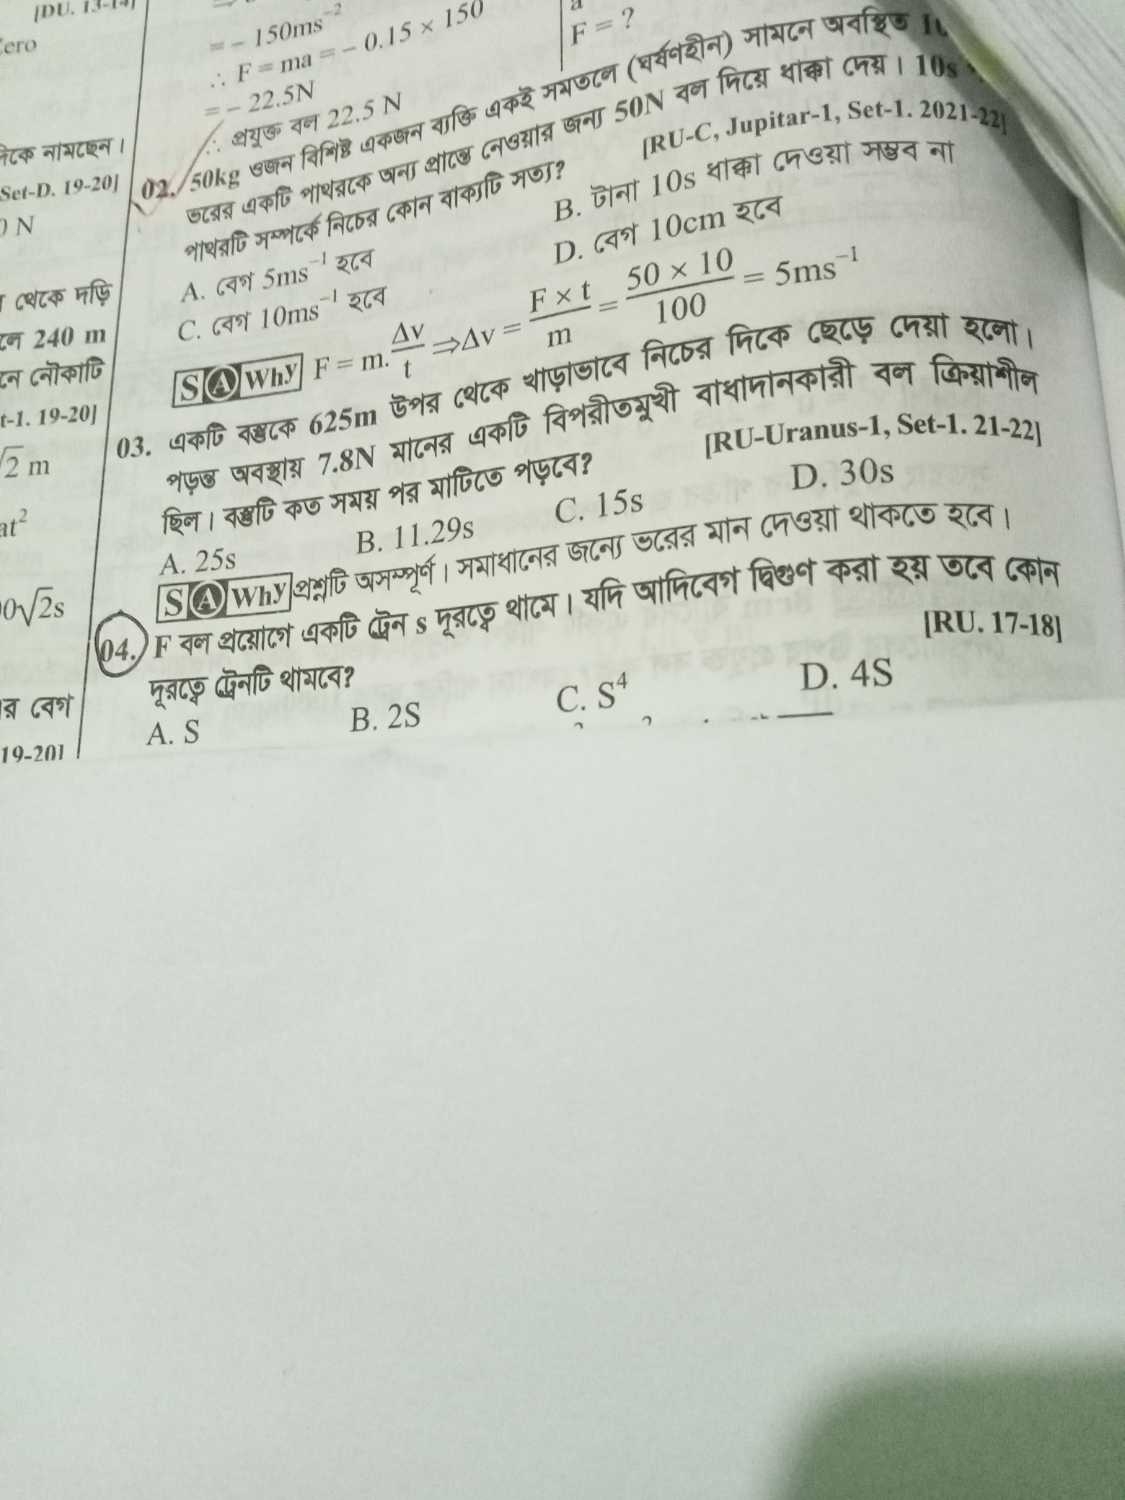 [DU. 13-14]
নিকে নামছেন।
Set-D. 19-20]
N
থেকে দড়ি
240 m
নৌকাটি
t-1. 19-20]
√2 m
at²
0√2s
র বেগ
19-20]
= – 150ms⁻²
∴ F = ma = – 0.15 × 150
= – 22.5N
∴ প্রযুক্ত বল 22.5 N
F = ?
02. 50kg ওজন বিশিষ্ট একজন ব্যক্তি একই সমতলে (ঘর্ষণহীন) সামনে অবস্থিত
ভরের একটি পাথরকে অন্য প্রান্তে নেওয়ার জন্য 50N বল দিয়ে ধাক্কা দেয়। 10s
পাথরটি সম্পর্কে নিচের কোন বাক্যটি সত্য?
[RU-C, Jupitar-1, Set-1. 2021-22]
A. বেগ 5ms⁻¹ হবে
B. টানা 10s ধাক্কা দেওয়া সম্ভব না
C. বেগ 10ms⁻¹ হবে
D. বেগ 10cm হবে
S A Why F = m. Δv/t ⇒ Δv = F × t/m = 50 × 10/100 = 5ms⁻¹
03. একটি বস্তুকে 625m উপর থেকে খাড়াভাবে নিচের দিকে ছেড়ে দেয়া হলো।
পড়ন্ত অবস্থায় 7.8N মানের একটি বিপরীতমুখী বাধাদানকারী বল ক্রিয়াশীল
ছিল। বস্তুটি কত সময় পর মাটিতে পড়বে?
[RU-Uranus-1, Set-1. 21-22]
A. 25s B. 11.29s C. 15s D. 30s
S A Why প্রশ্নটি অসম্পূর্ণ। সমাধানের জন্যে ভরের মান দেওয়া থাকতে হবে।
04. F বল প্রয়োগে একটি ট্রেন s দূরত্বে থামে। যদি আদিবেগ দ্বিগুণ করা হয় তবে কোন
দূরত্বে ট্রেনটি থামবে?
[RU. 17-18]
A. S B. 2S C. S⁴ D. 4S